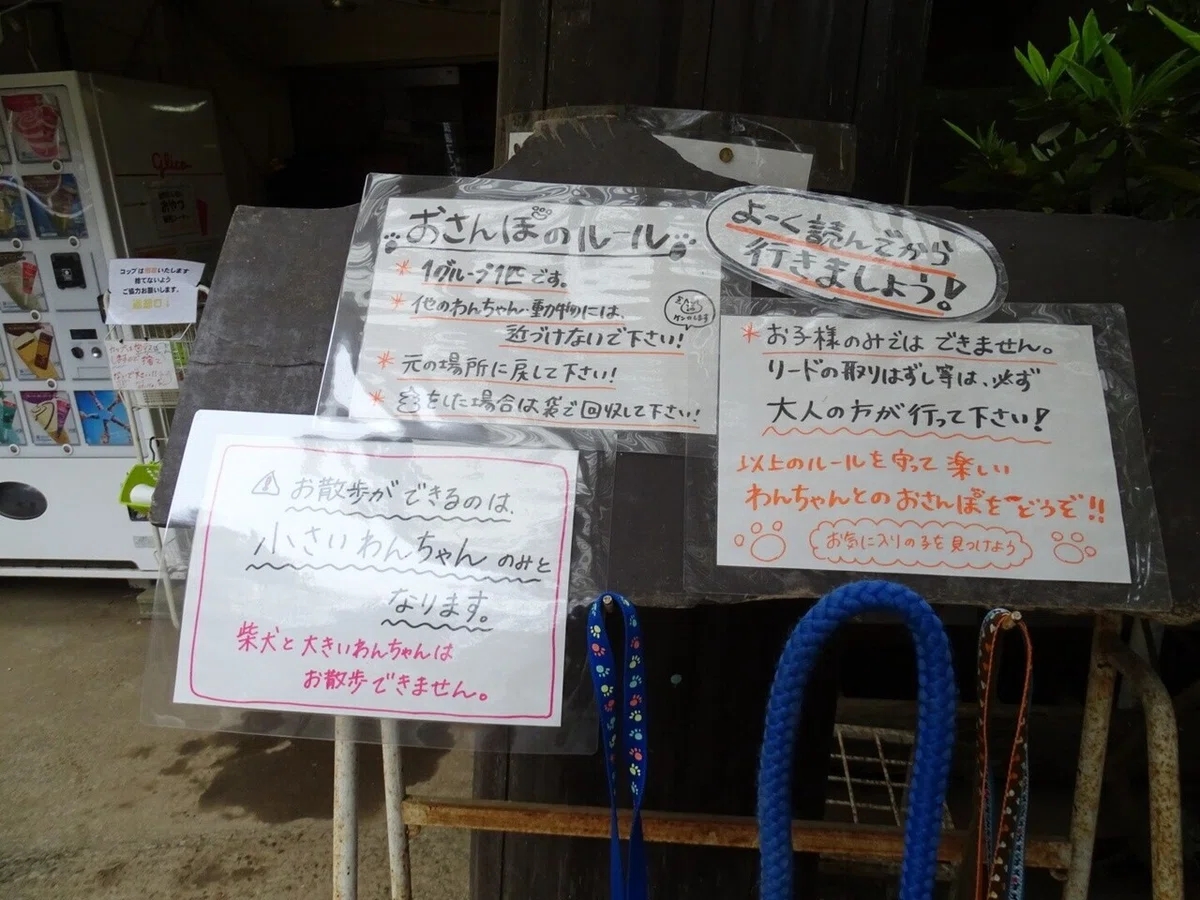 おさんぽのルール
* 1グループ1匹です。
* 他のわんちゃん・動物には、
近づけないで下さい!
* 元の場所に戻して下さい!
* をした場合は袋で回収して下さい!
よーく読んでから
行きましょう!
* お子様のみでは できません。
リードの取りはずし等は、必ず
大人の方が行って下さい!
以上のルールを守って 楽しい
わんちゃんとの おさんぽを〜どうぞ!!
お気に入りの子を見つけよう
お散歩ができるのは、
小さいわんちゃん のみと
なります。
柴犬と大きいわんちゃんは
お散歩できません。
glico
コップは回収いたします
捨てないよう
ご協力お願いします。